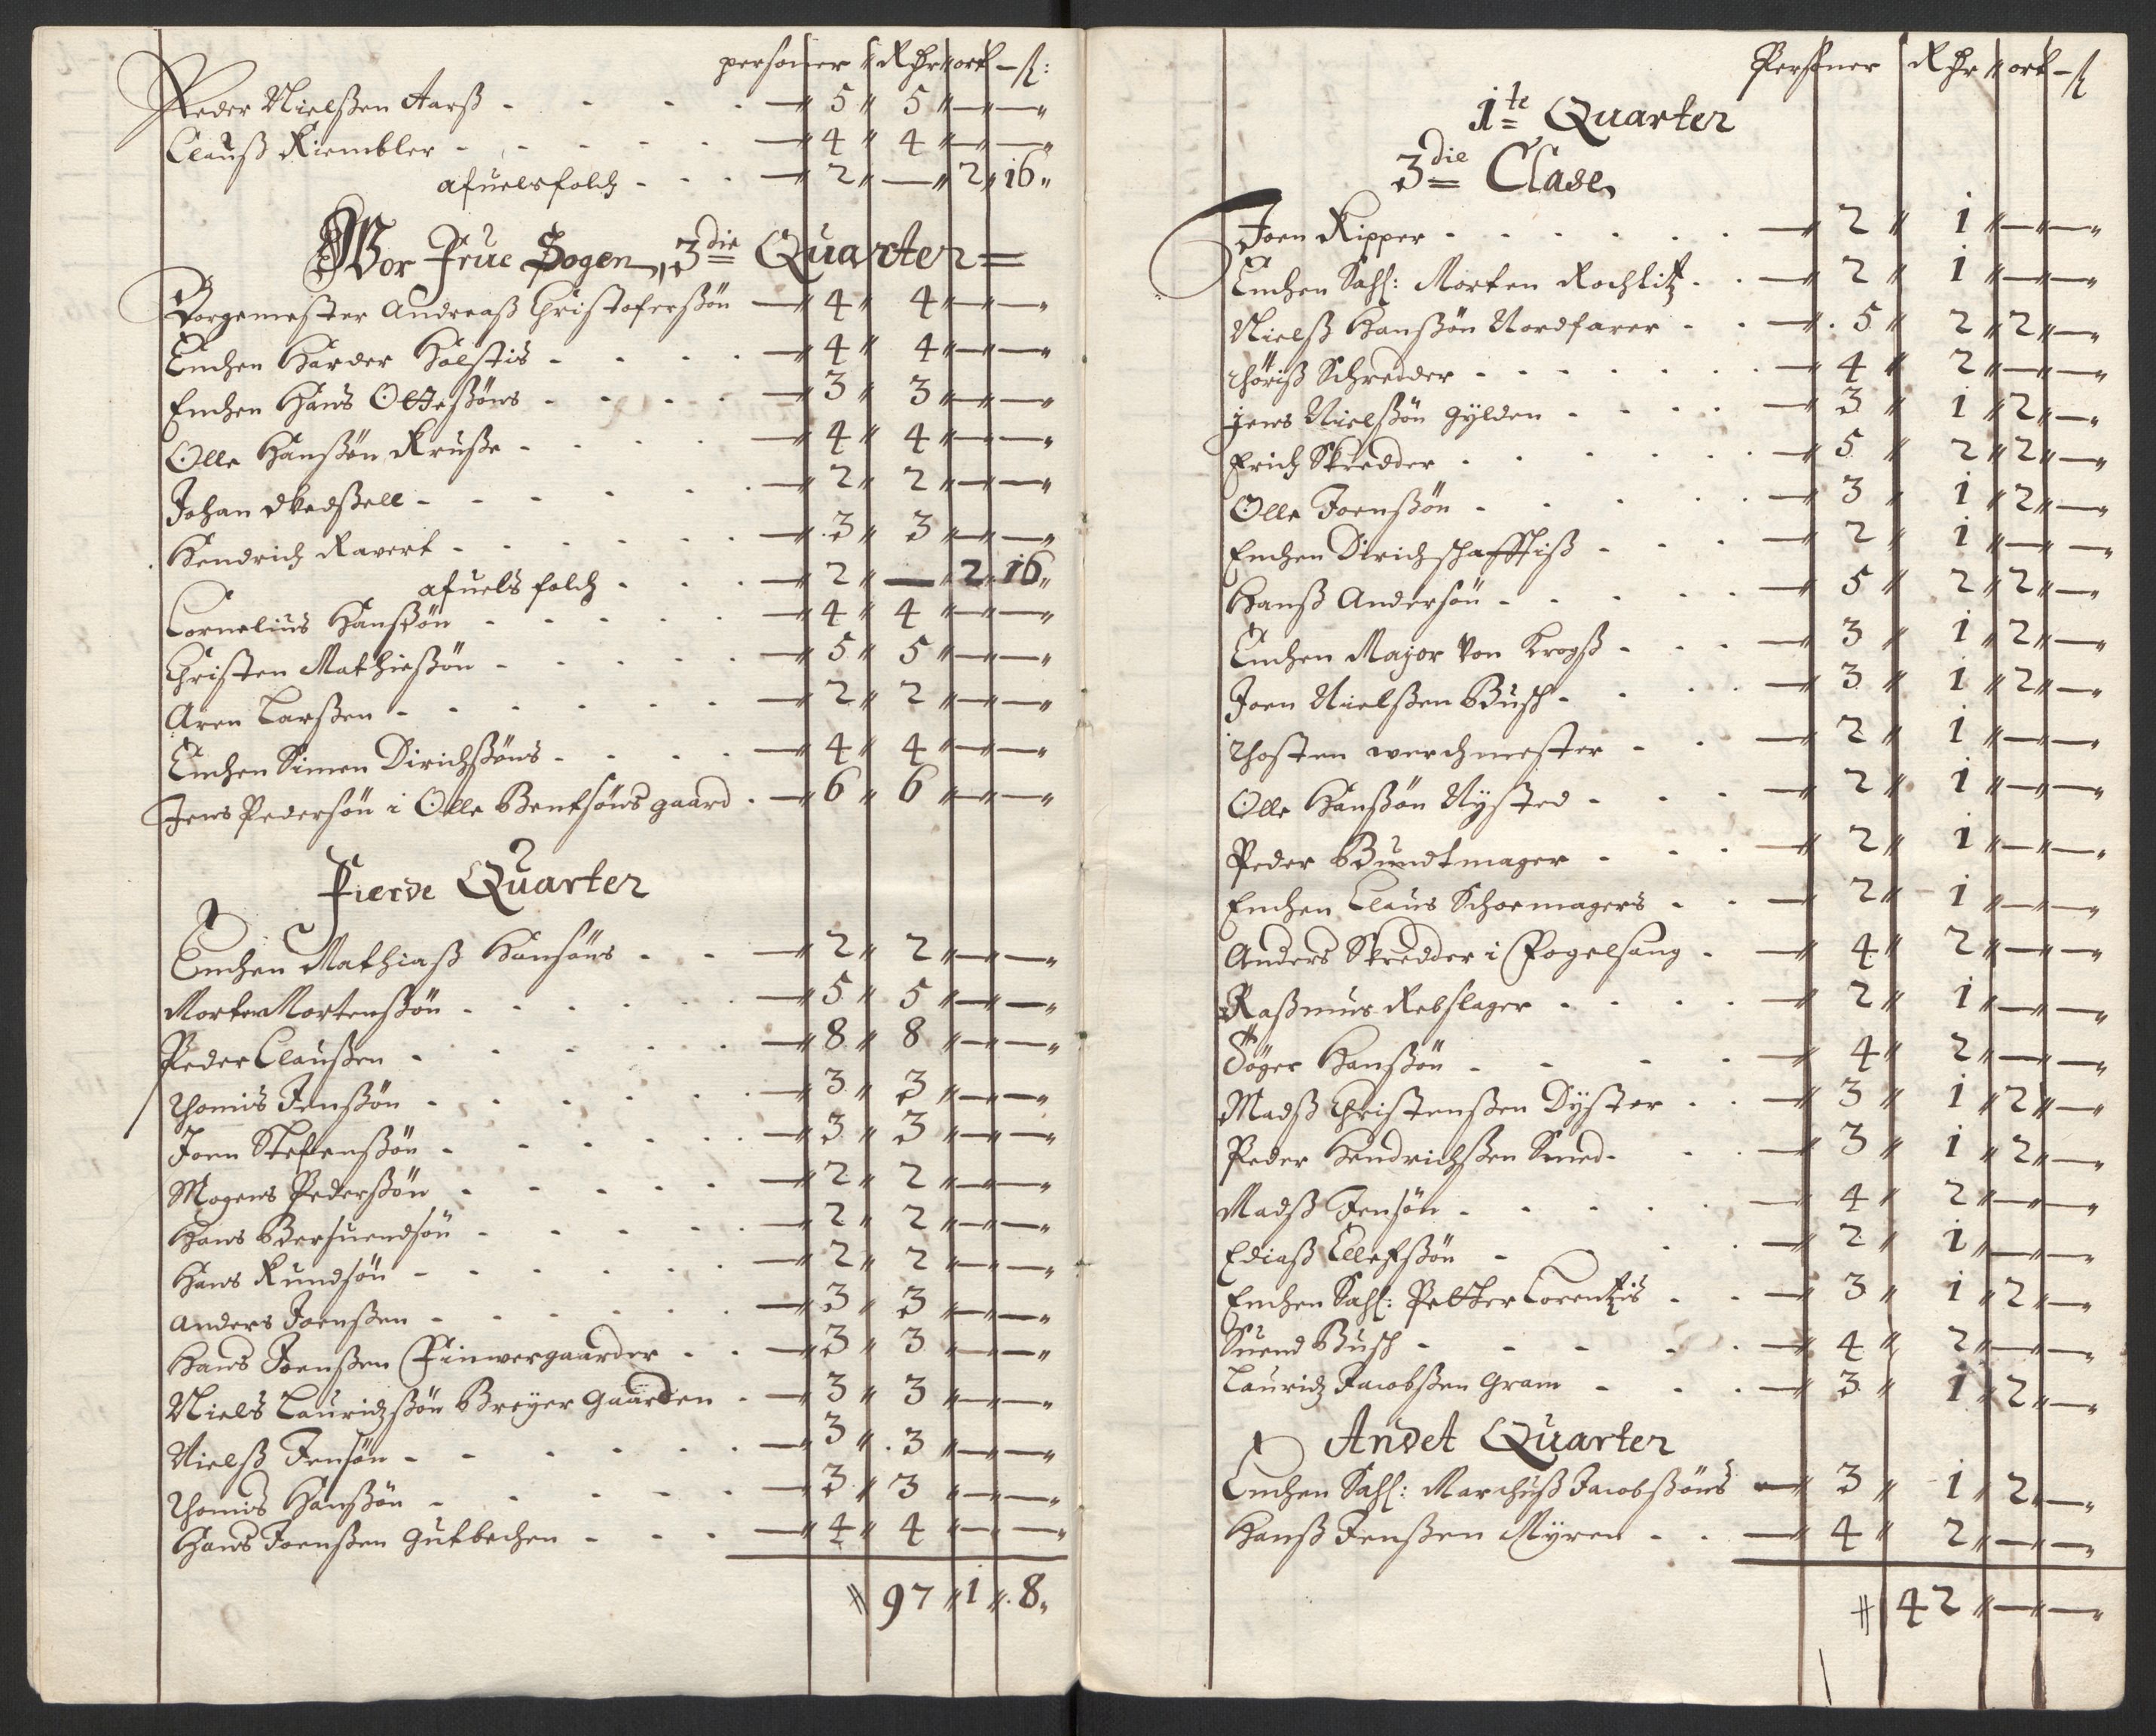 personer Rdr ort ß:
Peder Nielßen Aarß - 5 5 — —
Clauß Riembler - 4 4 — —
afuelsfolch - 2 — 2 16
Vor Frue Sogen, 3die Quarter
Borgemester Andreaß Christoferßøn 4 4 — —
Enchen Harder Holstis - 4 4 — —
Enchen Hans Olteßøns - 3 3 — —
Olle Hanßøn Kruse - 4 4 — —
Johan - 2 2 — —
Hendrich Ravert - 3 3 — —
afuels folch - 2 — 2 16
Cornelius Hanßøn - 4 4 — —
Christen Mathießøn - 5 5 — —
Aren Larßen - 2 2 — —
Enchen Simen Dirichßøns - 4 4 — —
Jens Pedersøn i Olle Bentsøns gaard - 6 6 — —
Fierde Quarter
Enchen Mathiaß Hansøns - 2 2 — —
Morten Mortenßøn - 5 5 — —
Peder Claußen - 8 8 — —
Thomis Jenßøn - 3 3 — —
Joen Stefenßøn - 3 3 — —
Mogens Pederßøn - 2 2 — —
Hans Bersuendsøn - 2 2 — —
Hans Knudsøn - 2 2 — —
Anders Joenßen - 3 3 — —
Hans Joenßen Finwergaarder - 3 3 — —
Niels Lauridßøn Breyer Gaarden - 3 3 — —
Nielß Jensøn - 3 3 — —
Thomis Hanßøn - 3 3 — —
Hans Joenßen Gulbechen - 4 4 — —
97 1 8
Personer Rdr ort ß
1te Quarter
3die Clase
Joen Kipper - 2 1 — —
Enchen Sahl: Morten Rochlitz - 2 1 — —
Nielß Hanßøn Nordfarer - 5 2 2 —
Thöriß Schredder - 4 2 — —
Jens Nielßøn Gylden - 3 1 2 —
Erich Skredder - 5 2 2 —
Olle Joenßøn - 3 1 2 —
Enchen Dirich Schafftiß - 2 1 — —
Hanß Andersøn - 5 2 2 —
Enchen Major von Krogß - 3 1 2 —
Joen Nielßen Busch - 3 1 2 —
Thosten werchmester - 2 1 — —
Olle Hanßøn Nysted - 2 1 — —
Peder Bundtmager - 2 1 — —
Enchen Claus Schoemagers - 2 1 — —
Anders Skredder i Fogelsang - 4 2 — —
Raßmus Rebslager - 2 1 — —
Söger Hanßøn - 4 2 — —
Madß Christenßen Dyster - 3 1 2 —
Peder Hendrichßen Smed - 3 1 2 —
Madß Jensøn - 4 2 — —
Ediaß Ellefßøn - 2 1 — —
Enchen Sahl: Petter Lorentzis - 3 1 2 —
Suend Busch - 4 2 — —
Lauridz Jacobßen Gram - 3 1 2 —
Andet Quarter
Enchen Sahl: Marchuß Jacobßøns - 3 1 2 —
Hanß Jenßen Myren - 4 2 — —
42 — —